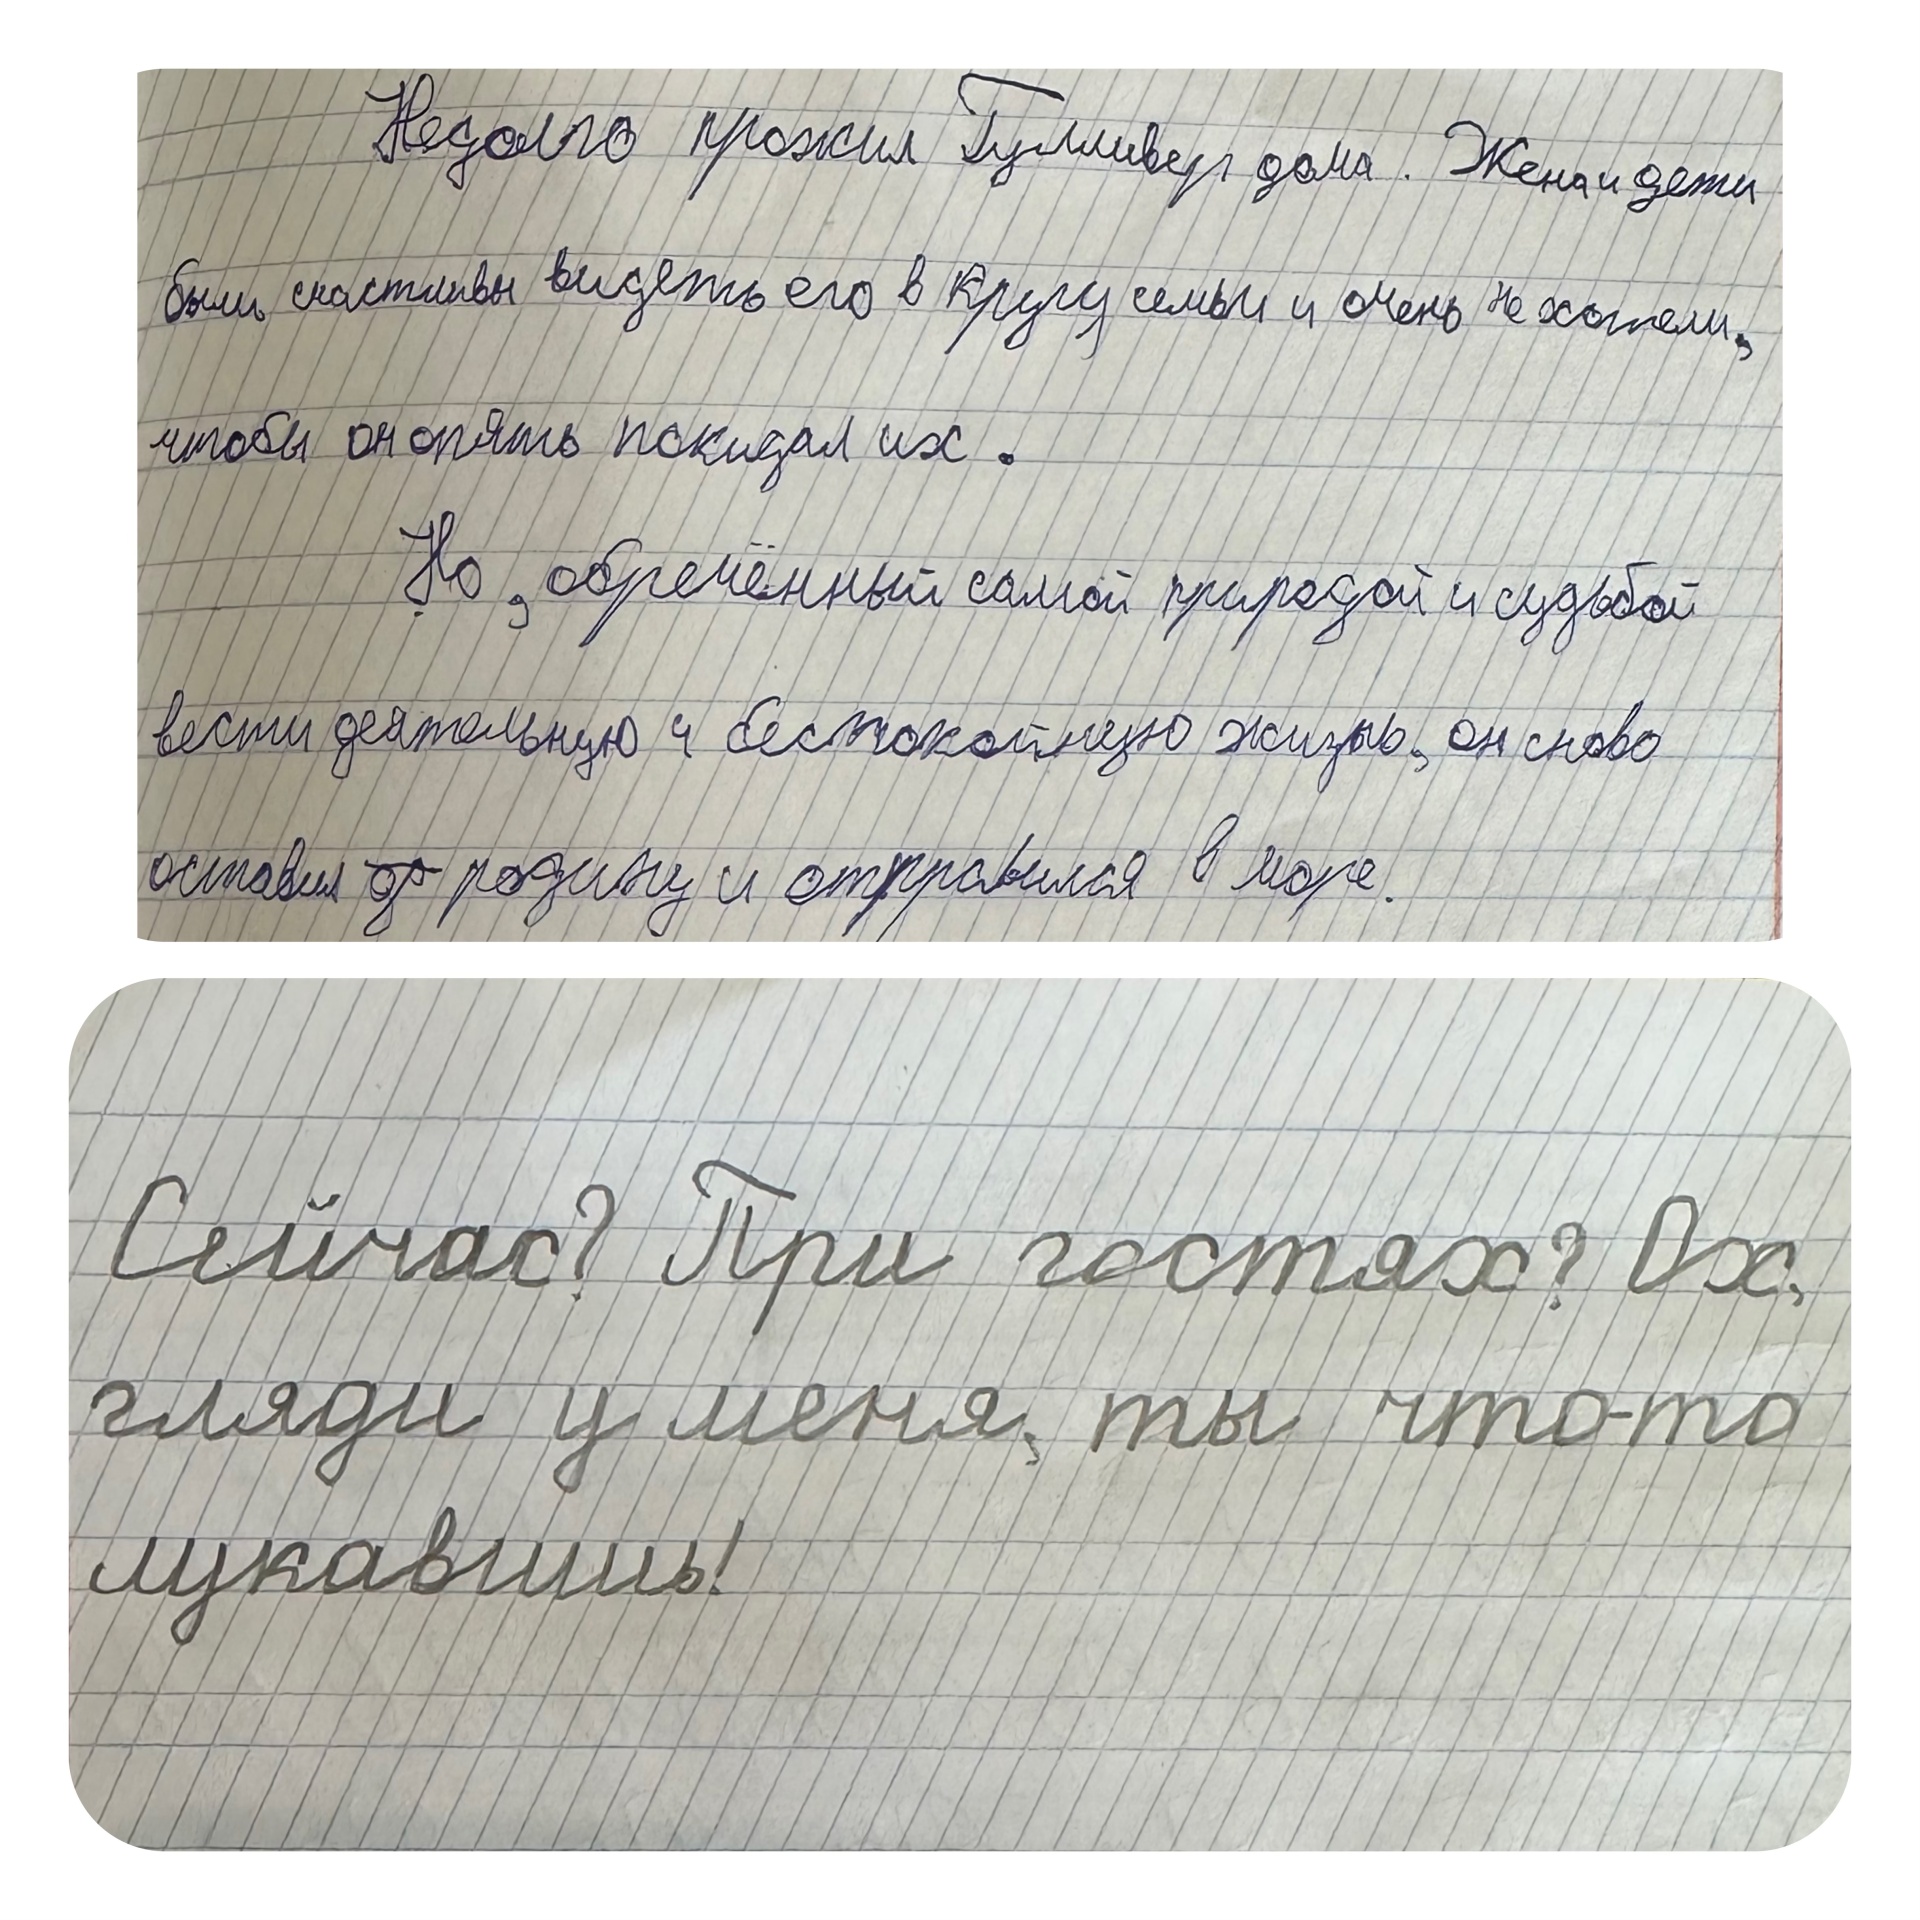 Недолго прожил Гулливер дома. Жена и дети
были счастливы видеть его в кругу семьи и очень не хотели,
чтобы он опять покидал их.
Но, обречённый самой природой и судьбой
вести деятельную и беспокойную жизнь, он снова
оставил родину и отправился в море.
Сейчас? При гостях? Ох,
гляди у меня, ты что-то
лукавишь!